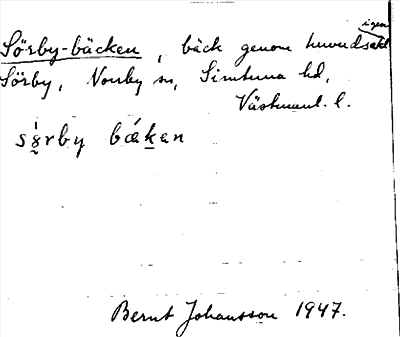 Sörby-bäcken, bäck genom huvudsakligen
Sörby, Norrby sn, Simtuna hd,
Västmanl. l.
sö̀rby bǽkan
Bernt Johansson 1947.